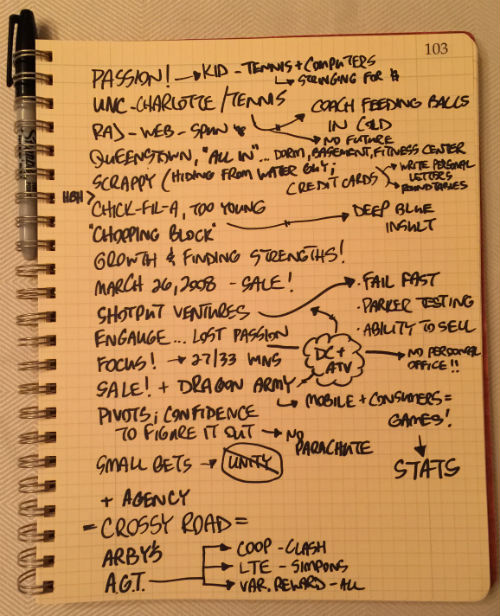 103
PASSION! → KID - TENNIS + COMPUTERS
↳ STRINGING FOR $
UNC-CHARLOTTE / TENNIS
COACH FEEDING BALLS
IN COLD
RAD - WEB - SPUN
NO FUTURE
QUEENSTOWN, "ALL IN"... DORM, BASEMENT, FITNESS CENTER
SCRAPPY (HIDING FROM WATER GUY;
CREDIT CARDS
WRITE PERSONAL
LETTERS
ROUNDTABLES
HIGH >
CHICK-FIL-A, TOO YOUNG
DEEP BLUE
INSULT
"CHOPPING BLOCK"
GROWTH & FINDING STRENGTHS!
MARCH 26, 2008 - SALE!
· FAIL FAST
SHOTPUT VENTURES
· PARKER TESTING
· ABILITY TO SELL
ENGAUGE... LOST PASSION
DC +
ATV
NO PERSONAL
OFFICE!!
FOCUS! → 27/33 WINS
SALE! + DRAGON ARMY
↳ MOBILE + CONSUMERS =
GAMES!
PIVOTS; CONFIDENCE
TO FIGURE IT OUT → NO
PARACHUTE
STATS
SMALL BETS → UNITY
+ AGENCY
= CROSSY ROAD =
ARBY'S
A.G.T.
→ COOP - CLASH
→ LTE - SIMPSONS
→ VAR. REWARD - ALL